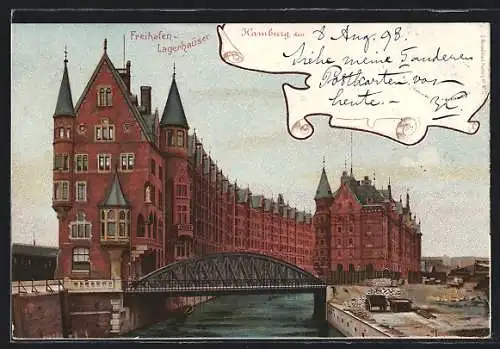 Freihafen-
Lagerhäuser
Hamburg, den 8 Aug. 98.
Siehe meine
Postkarten von
heute.-